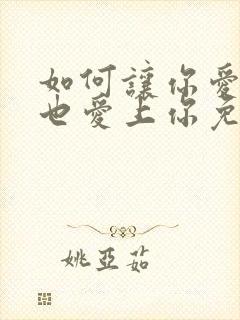 如何讓你愛
也愛上你免
姚亞茹